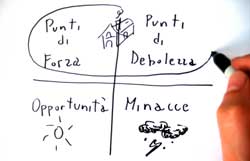 Punti
di
Forza
Punti
di
Debolezza
Opportunità
Minacce